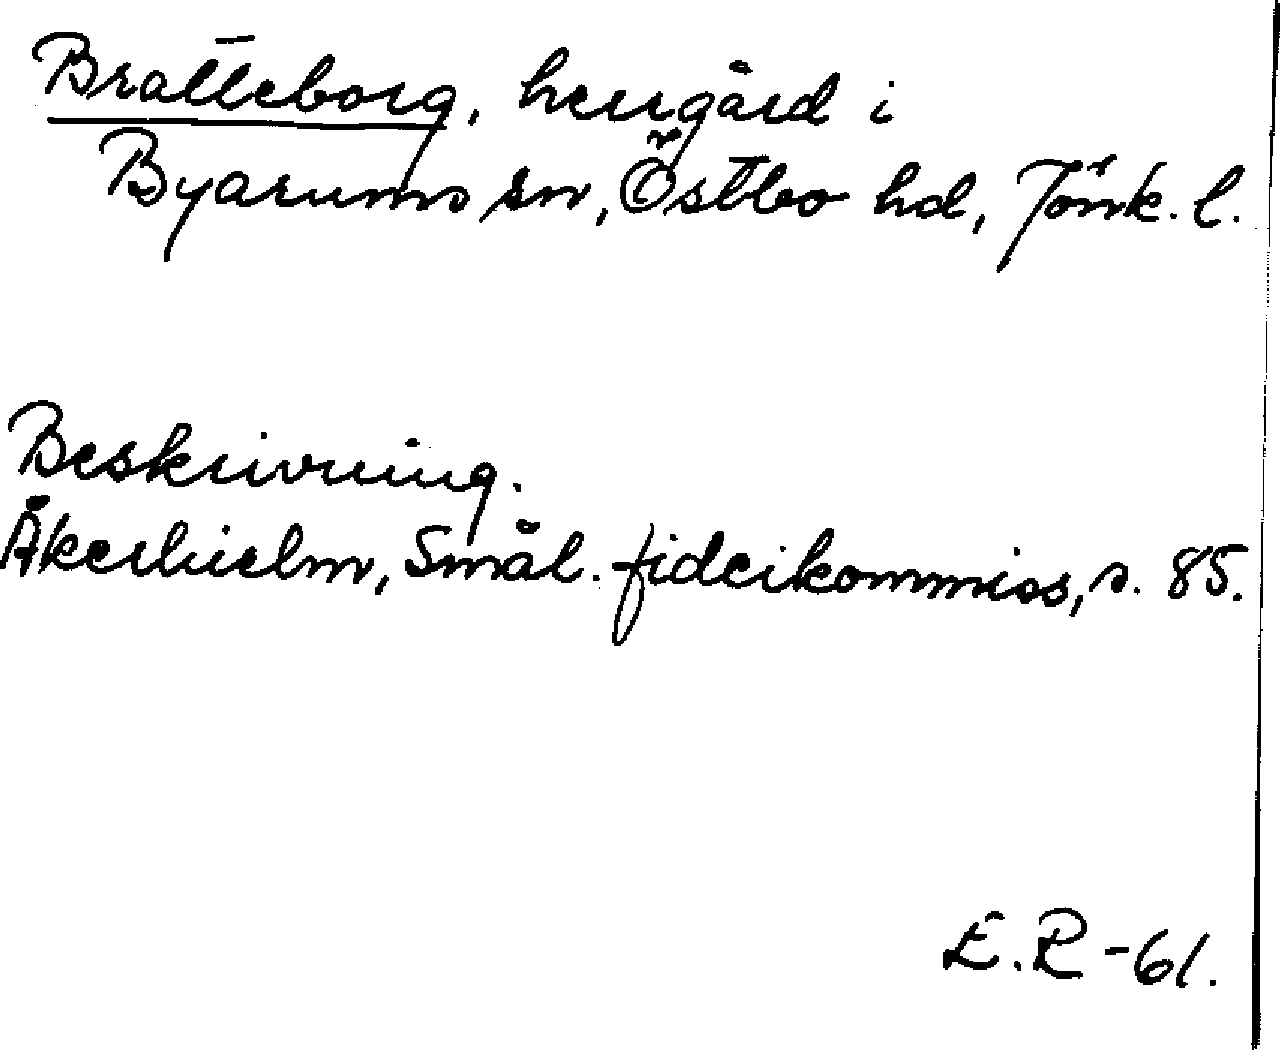 Bratteborg, herrgård i
Byarums sn, Östbo hd, Jönk. l.
Beskrivning.
Åkerhielm, Smål. fideikommiss, s. 85.
E.R-61.